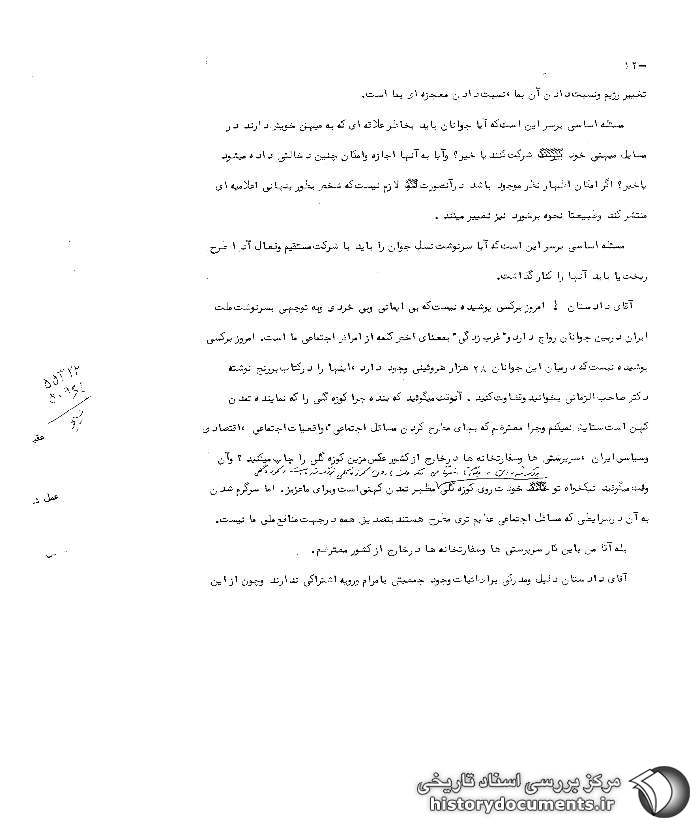 -۱۲
تغییر رژیم ونسبت دادن آن بما ،نسبت دادن معجزه ای بما است.
مسئله اساسی برسر این است که آیا جوانان باید بخاطر علاقه ای که به میهن خویش دارند در
مسایل میهنی خود شرکت کنند یا خیر؟ وآیا به آنها اجازه وامکان چنین دخالتی داده میشود
یاخیر؟ اگر امکان اظهار نظر موجود باشد درآنصورت لازم نیست که شخص بطور پنهانی اعلامیه ای
منتشر کند وطبیعتا نحوه برخورد نیز تغییر میکند .
مسئله اساسی برسر این است که آیا سرنوشت نسل جوان را باید با شرکت مستقیم وفعال آنها طرح
ریخت یا باید آنها را کنار گذاشت.
آقای دادستان ! امروز برکسی پوشیده نیست که بی ایمانی وبی خردی وبه توجهی بسرنوشت ملت
ایران دربین جوانان رواج دارد و"غرب زدگی" بمعنای اخص کلمه از امراض اجتماعی ما است. امروز برکسی
پوشیده نیست که درمیان این جوانان ۲۸ هزار هروئینی وجود دارد ،اینها را درکتاب نوشته
دکتر صاحب الزمانی بخوانید وقضاوت کنید . آنوقت میگوئید که بنده چرا کوزه گلی را که نماینده تمدن
کهن است ستایش نمیکنم وچرا معترضم که بجای مطرح کردن مسائل اجتماعی ،واقعیات اجتماعی ،اقتصادی
وسیاسی ایران ،سرپرستی ها وسفارتخانه ها درخارج از کشور عکس مزین کوزه گلی را چاپ میکنند ؟ وآن
وقت میگوئید نیکخواه تو خودت روی کوزه گلی مظهر تمدن کهنی است وبرای ماعزیز. اما سرگرم شدن
به آن درشرایطی که مسائل اجتماعی عظیم تری مطرح هستند بتصدیق همه درجهت منافع ملی ما نیست.
بله آقا من باین کار سرپرستی ها وسفارتخانه ها درخارج از کشور معترضم.
آقای دادستان دلیل ومدرکی براثبات وجود جمعیتی بامرام ورویه اشتراکی ندارند وچون از این
مرکز بررسی اسناد تاریخی
historydocuments.ir